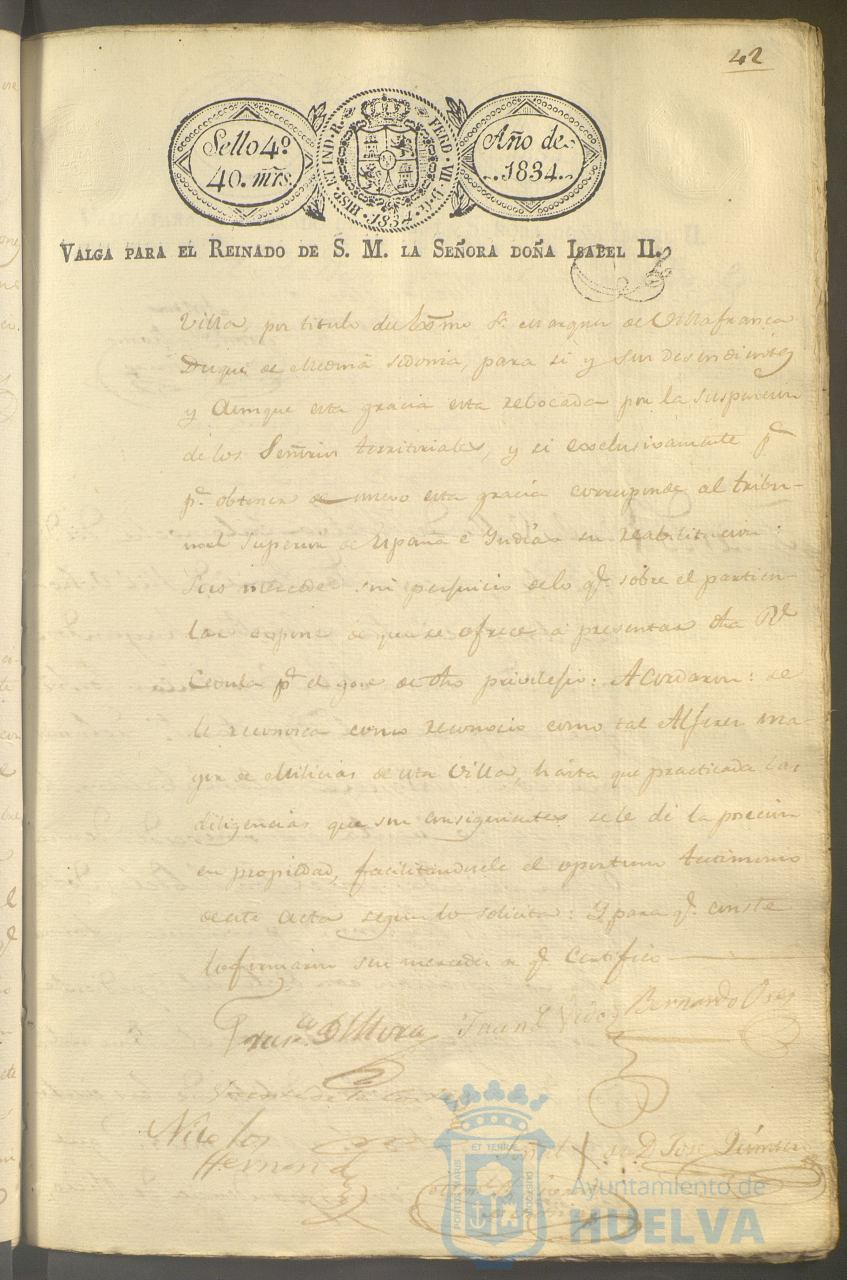 42
Sello 4º
40. mrs.
HISP. ET IND. R. FERD. VII. D. G. 1834.
Año de
1834.
VALGA PARA EL REINADO DE S. M. LA SEÑORA DOÑA ISABEL II.
Villa, por titulo del Exmo Sr. Marques de Villafranca
Duque de Medina Sidonia, para si y sus desendientes
y aunque esta gracia esta rebocada por la suspension
de los Señorios territoriales, y si exclusivamente pª
pª obtener de nuevo esta gracia corresponde al tribu-
nal Superior de España e Yndias su reabilitacion:
Sus mercedes sin perjuicio de lo qe. sobre el particu-
lar espone de que se ofrece a presentar dha Rl
Cedula pª el gose de dho privilegio: Acordaron: se
le reconosca como reconocio como tal Alferes ma-
yor de Milicias de esta Villa, hasta que practicada las
diligencias que son consiguientes se le dé la posecion
en propiedad, facilitandosele el oportuno testimonio
de esta Acta segun lo solicita: Y para qe. conste
lo firmaron sus mercedes de qe Certifico
Franco. de Mora
Bernardo
Nicolas
Hernand
D. Jose
PORTUS MARIS ET TERRAE CUSTODIA
Ayuntamiento de
HUELVA